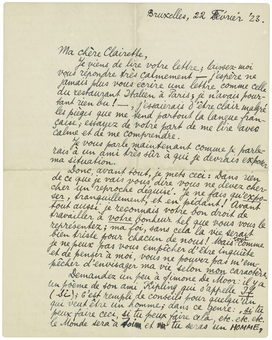 Bruxelles, 22 Février '23.
Ma chère Clairette,
Je viens de lire votre lettre; laissez-moi
vous répondre très calmement — j'espère ne
jamais plus vous écrire une lettre comme celle
du restaurant Italien à Paris; je n'avais pour-
tant rien bu! —, j'essaierai d'être clair malgré
les pièges que me tend partout la langue fran-
çaise; essayez de votre part de me lire avec
calme et de me comprendre.
Je vous parle maintenant comme je parle-
rais à un ami très sûr à qui je devrais exposer
ma situation.
Donc, avant tout, je mets ceci: Dans rien
de ce que je vais vous dire vous ne devez cher-
cher un reproche déguisé. Je ne fais qu'expo-
ser, tranquillement, et en pédant! Avant
tout aussi: je reconnais votre bon droit de
travailler à votre bonheur tel que vous vous le
représentez; ma foi, sans cela la vie serait
bien triste pour chacun de nous! Mais comme
je ne peux pas vous empêcher d'être inquiète
et de penser à moi, vous ne pouvez pas m'em-
pêcher d'envisager ma vie selon mon caractère.
Demandez un peu à Simone de Moor: il y a
un poème de son ami Kipling qui s'appelle "If"
(Si); c'est rempli de conseils pour quelqu'un
qui veut être un homme; dans ce genre: si tu
peux faire ceci, si tu peux faire cela, etc. etc. etc.
le Monde sera à toi et tu seras un HOMME,